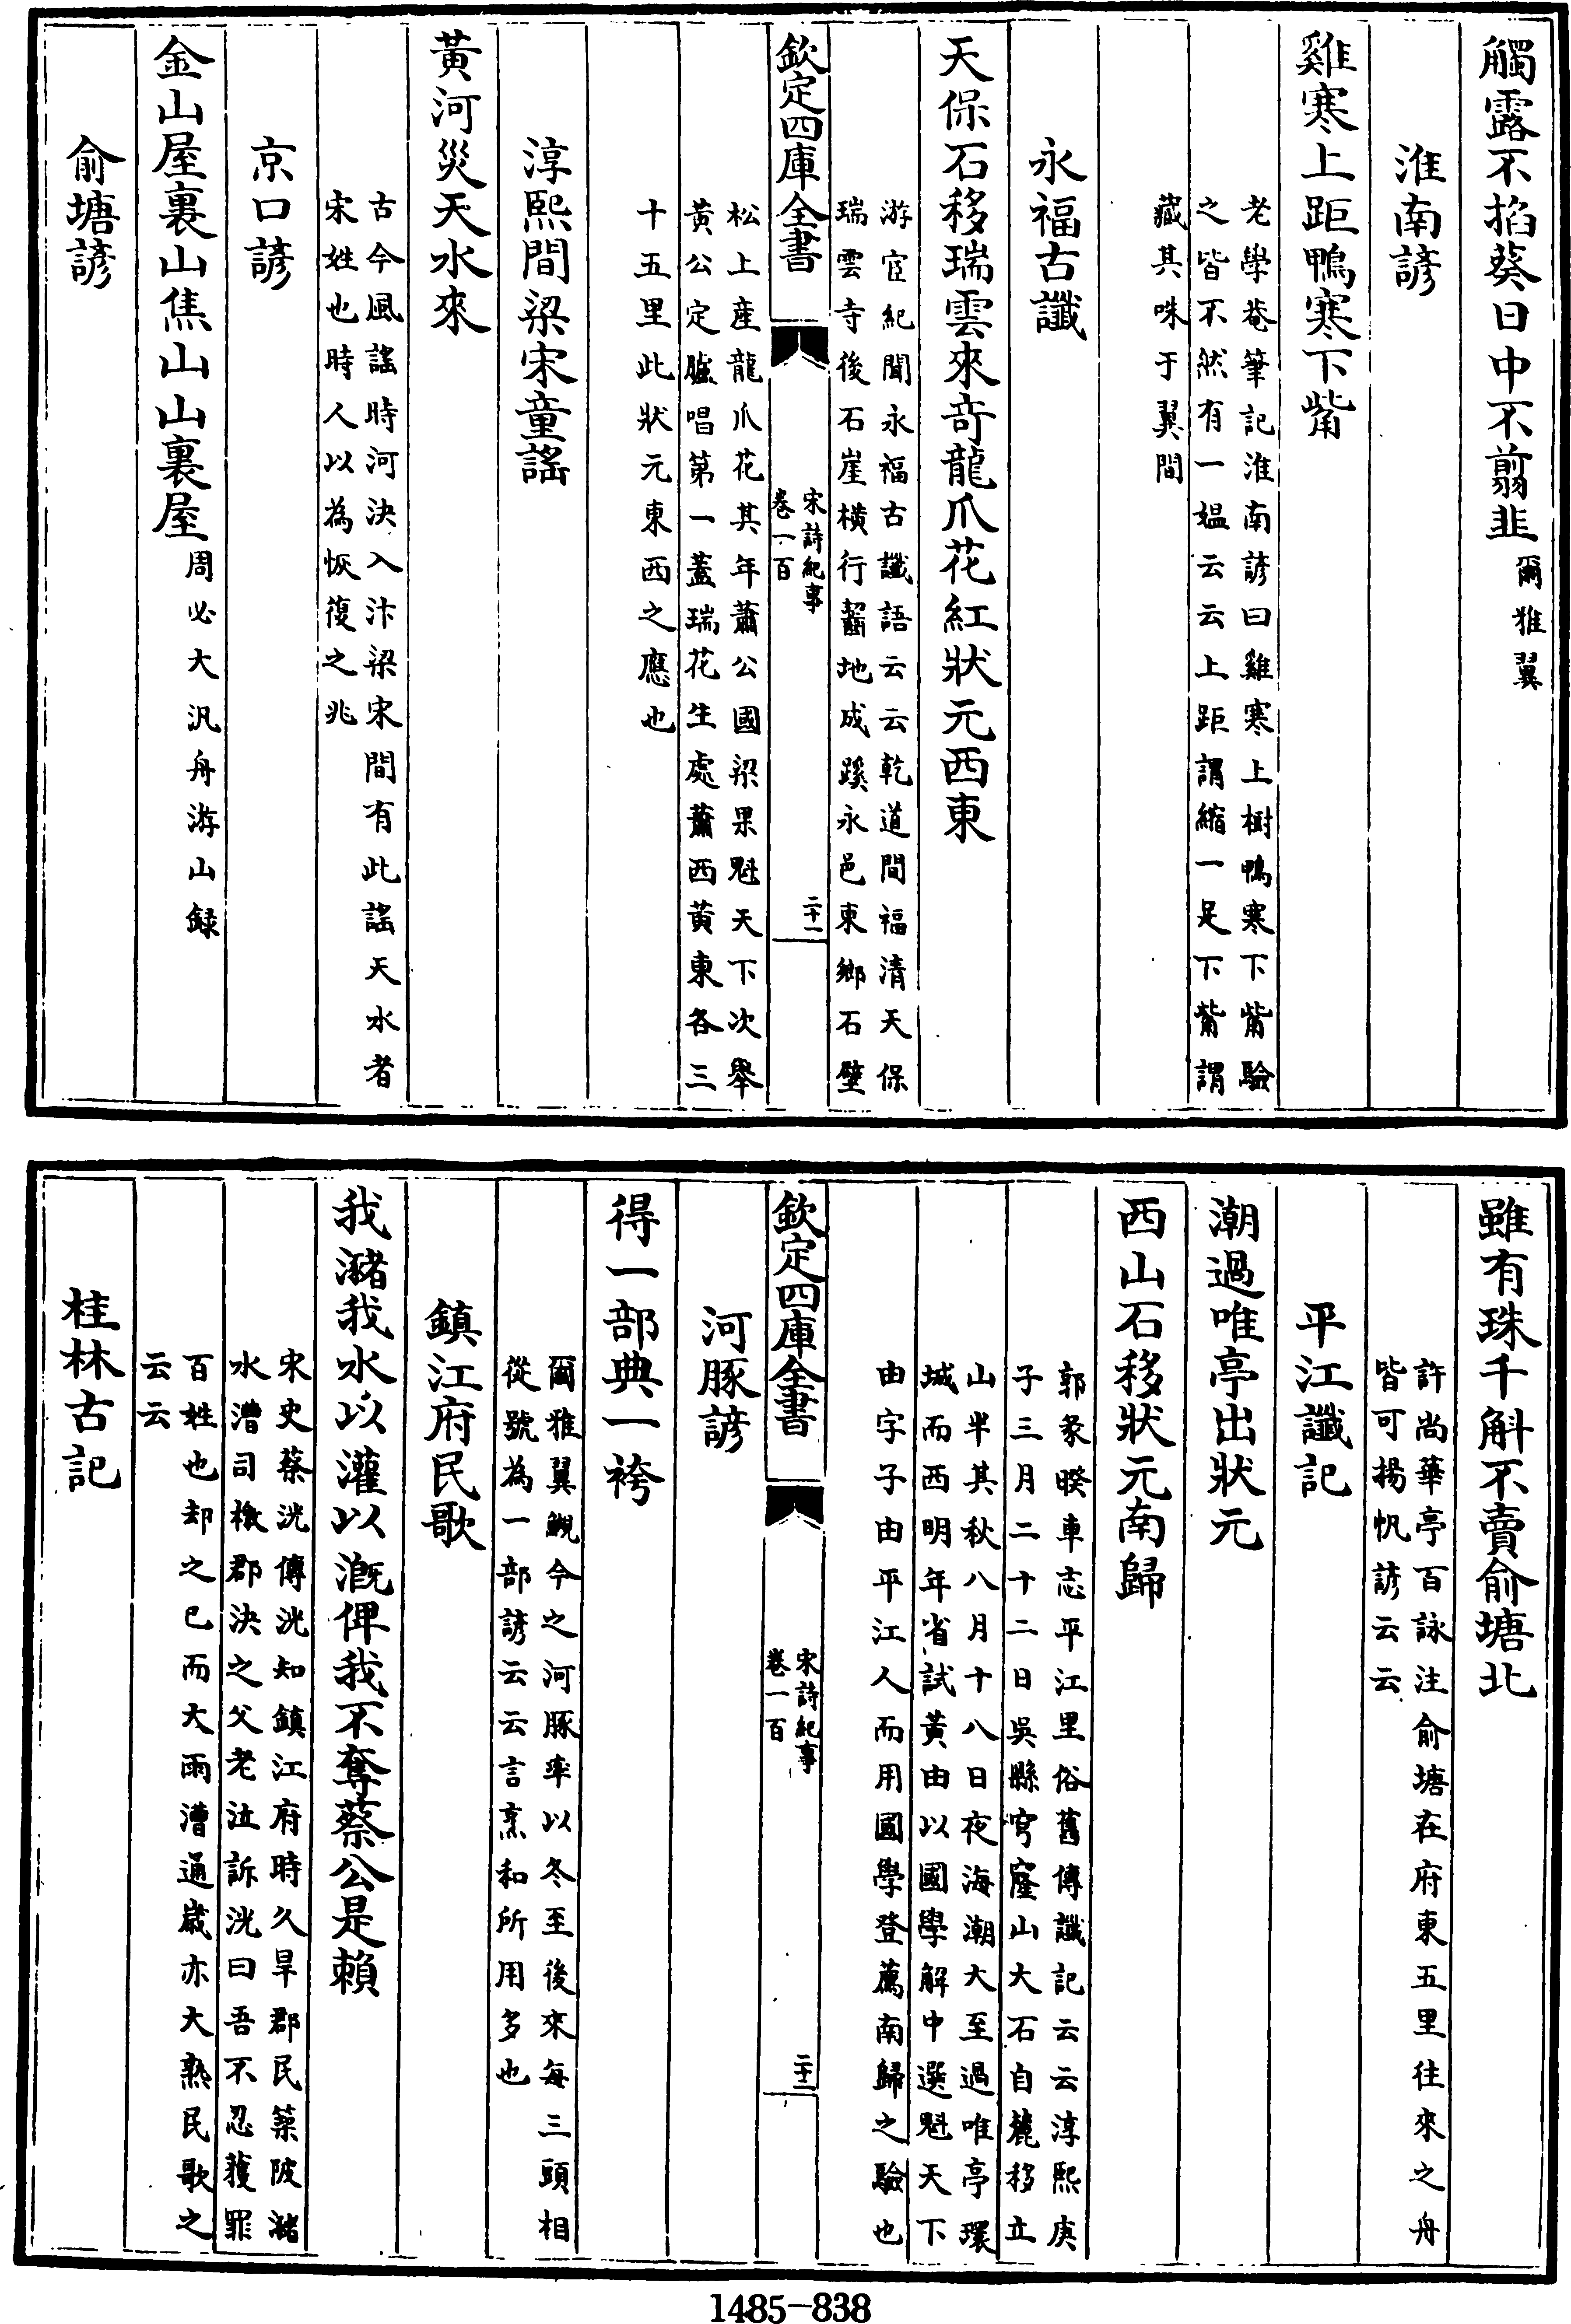 觸露不掐葵日中不翦韭爾雅翼
淮南諺
雞寒上距鴨寒下觜
老學菴筆記淮南諺曰雞寒上樹鴨寒下觜驗
之皆不然有一媼云云上距謂縮一足下觜謂
藏其咮于翼間
永福古讖
天保石移瑞雲來奇龍爪花紅狀元西東
游宦紀聞永福古讖語云云乾道間福清天保
瑞雲寺後石崖橫行齧地成蹊永邑東鄉石壁
欽定四庫全書
宋詩紀事
卷一百
二十一
松上産龍爪花其年蕭公國梁果魁天下次舉
黃公定臚唱第一蓋瑞花生處蕭西黃東各三
十五里此狀元東西之應也
淳熙間梁宋童謠
黃河災天水來
古今風謠時河決入汴梁宋間有此謠天水者
宋姓也時人以為恢復之兆
京口諺
金山屋裏山焦山山裏屋周必大汎舟游山録
俞塘諺
雖有珠千斛不賣俞塘北
許尚華亭百詠注俞塘在府東五里往來之舟
皆可揚帆諺云云
平江讖記
潮過唯亭出狀元
西山石移狀元南歸
郭彖睽車志平江里俗舊傳讖記云云淳熙庚
子三月二十二日吳縣穹窿山大石自麓移立
山半其秋八月十八日夜海潮大至過唯亭環
城而西明年省試黃由以國學解中選魁天下
由字子由平江人而用國學登薦南歸之驗也
欽定四庫全書
宋詩紀事
卷一百
二十二
河豚諺
得一部典一袴
爾雅翼鯢今之河豚率以冬至後來每三頭相
從號為一部諺云云言烹和所用多也
鎮江府民歌
我瀦我水以灌以溉俾我不奪蔡公是賴
宋史蔡洸傳洸知鎮江府時久旱郡民築陂瀦
水漕司檄郡決之父老泣訴洸曰吾不忍獲罪
百姓也却之已而大雨漕通歲亦大熟民歌之
云云
桂林古記
1485-838